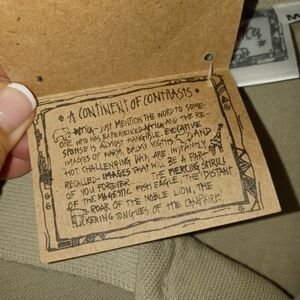 • A CONTINENT OF CONTRASTS •
AFRICA - JUST MENTION THE WORD TO SOME-
ONE WHO HAS EXPERIENCED AFRICA AND THE RE-
SPONSE IS ALMOST TANGIBLE. EVOCATIVE
IMAGES OF WARM, BALMY NIGHTS AND
HOT CHALLENGING DAYS ARE INSTANTLY
RECALLED - IMAGES THAT WILL BE A PART
OF YOU FOREVER. THE PIERCING SHRILL
OF THE MAJESTIC FISH EAGLE, THE DISTANT
ROAR OF THE NOBLE LION, THE
FLICKERING TONGUES OF THE CAMPFIRE